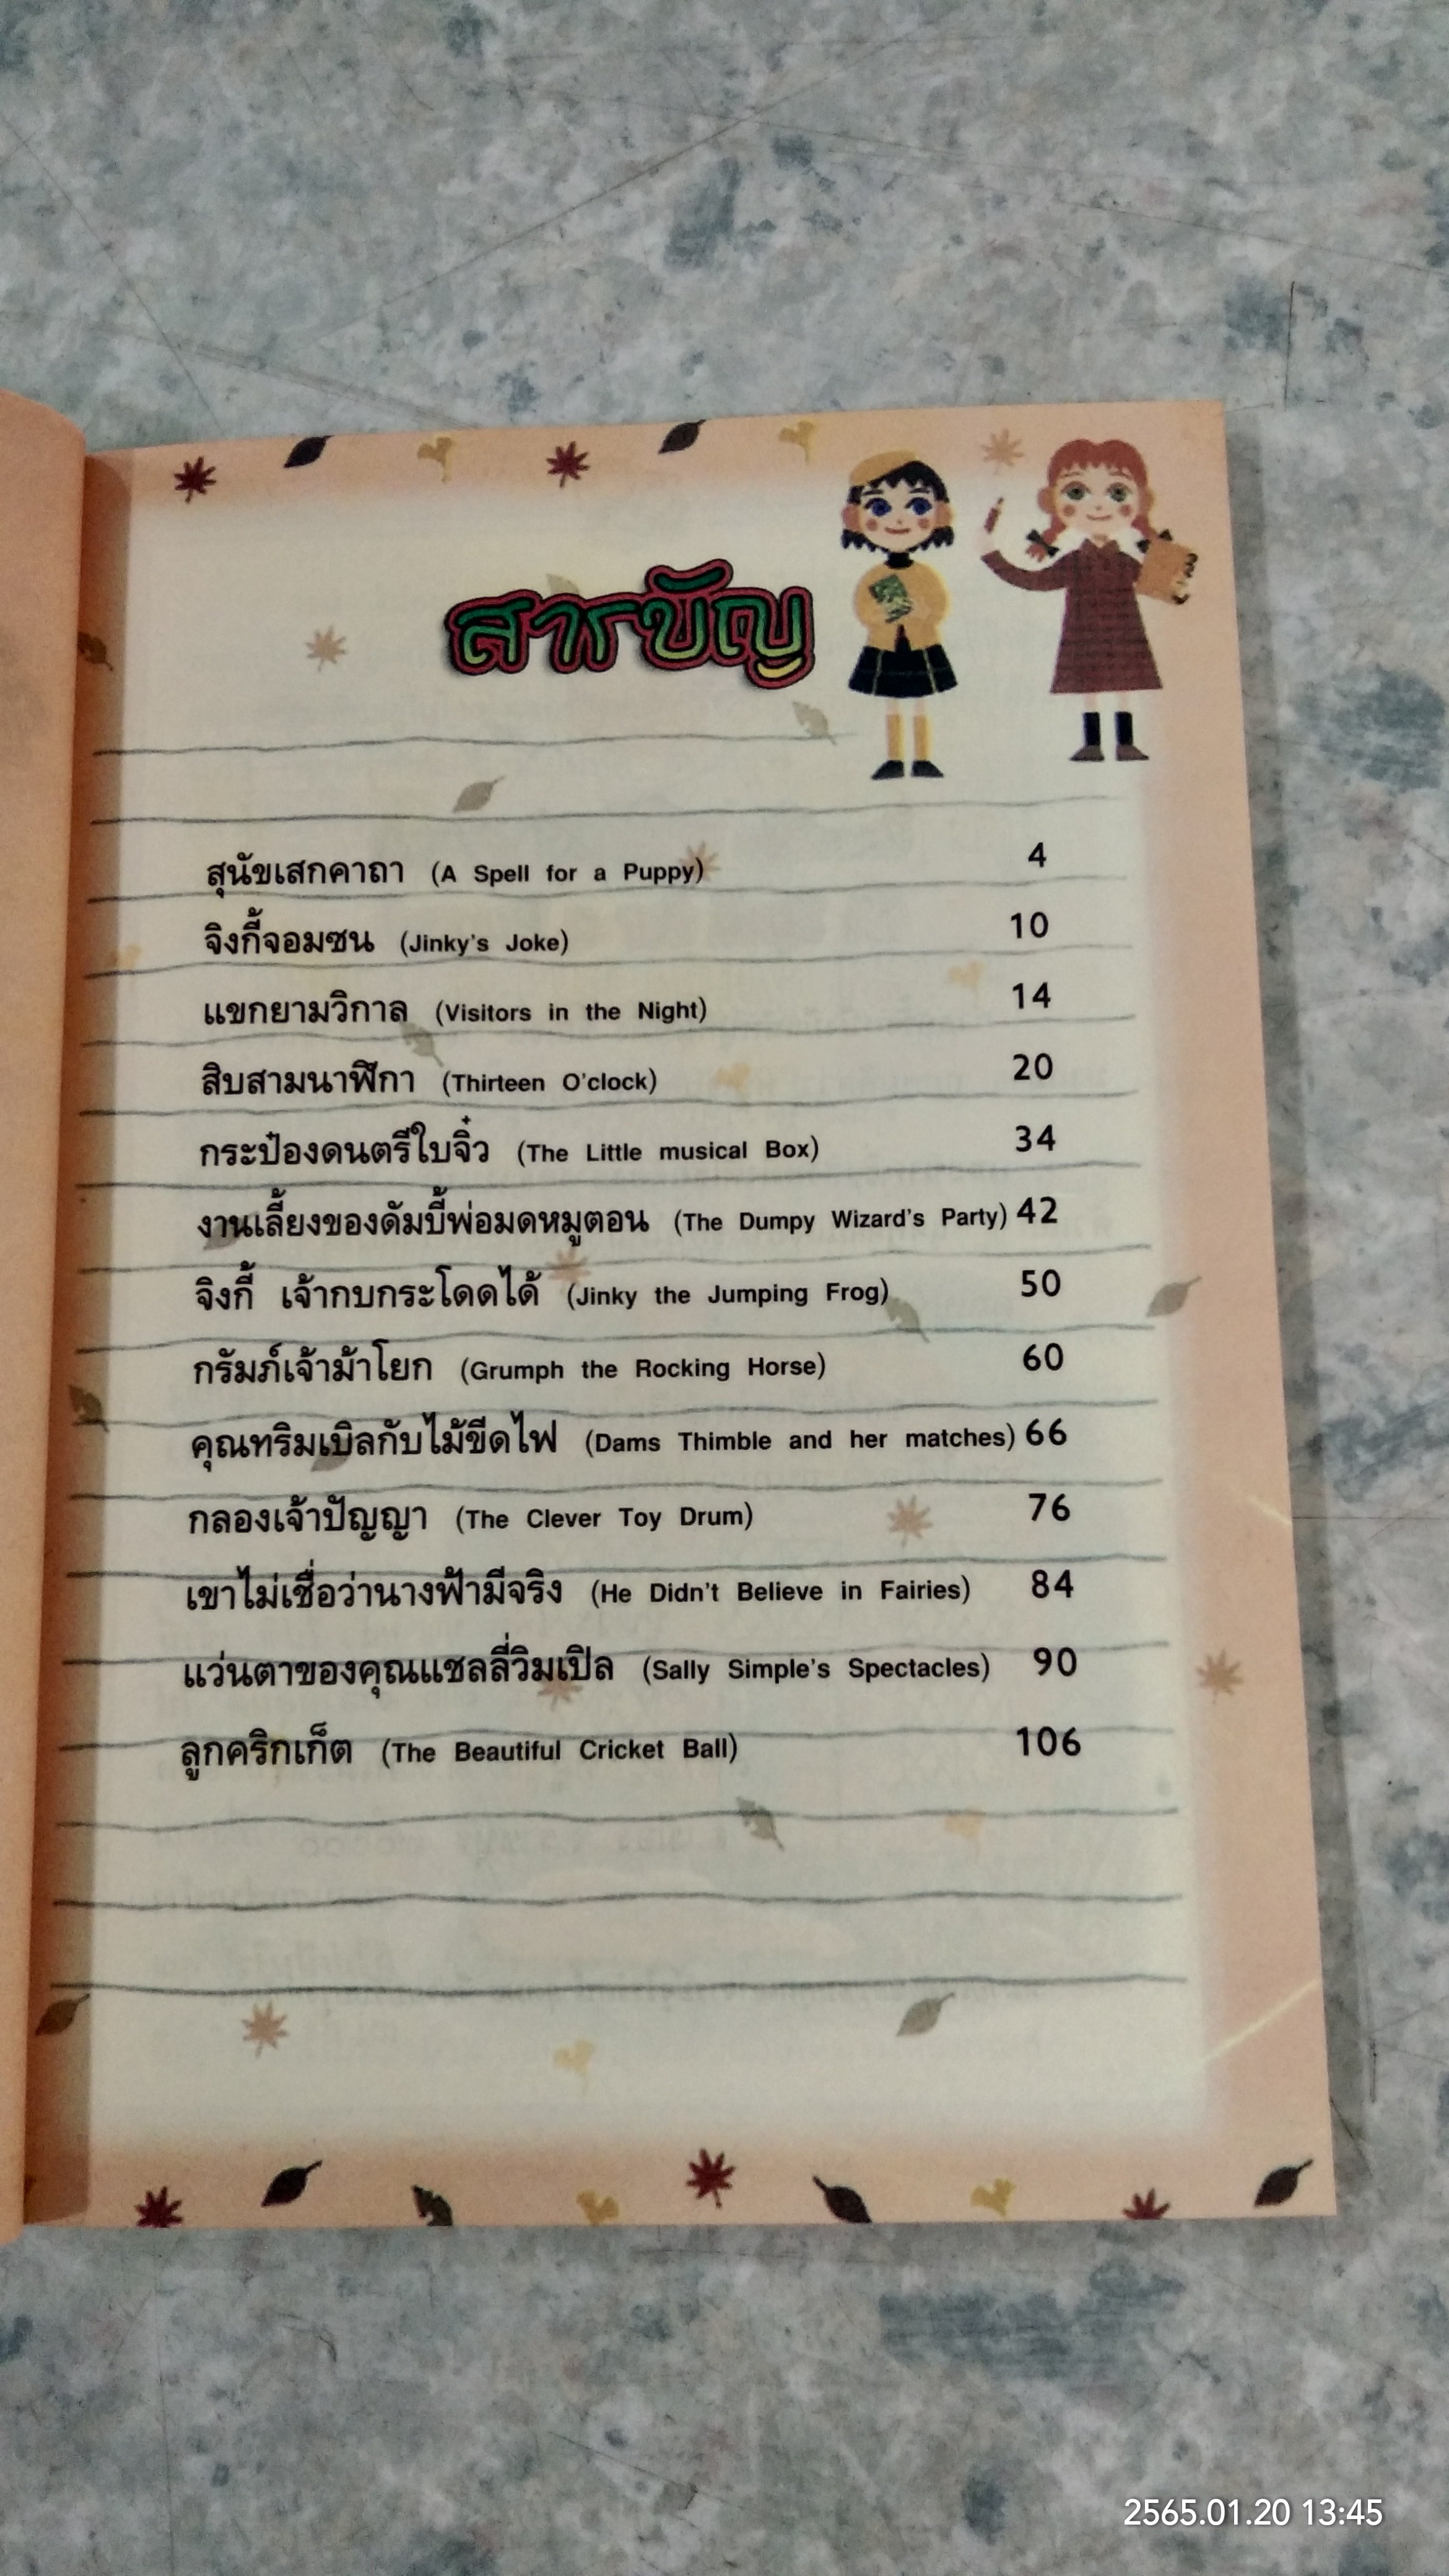 สารบัญ
สุนัขเสกคาถา (A Spell for a Puppy) 4
จิงกี้จอมซน (Jinky's Joke) 10
แขกยามวิกาล (Visitors in the Night) 14
สิบสามนาฬิกา (Thirteen O'clock) 20
กระป๋องดนตรีใบจิ๋ว (The Little musical Box) 34
งานเลี้ยงของดัมบี้พ่อมดหมูตอน (The Dumpy Wizard's Party) 42
จิงกี้ เจ้ากบกระโดดได้ (Jinky the Jumping Frog) 50
กรัมภ์เจ้าม้าโยก (Grumph the Rocking Horse) 60
คุณทริมเบิลกับไม้ขีดไฟ (Dams Thimble and her matches) 66
กลองเจ้าปัญญา (The Clever Toy Drum) 76
เขาไม่เชื่อว่านางฟ้ามีจริง (He Didn't Believe in Fairies) 84
แว่นตาของคุณแซลลี่วิมเปิล (Sally Simple's Spectacles) 90
ลูกคริกเก็ต (The Beautiful Cricket Ball) 106
2565.01.20 13:45